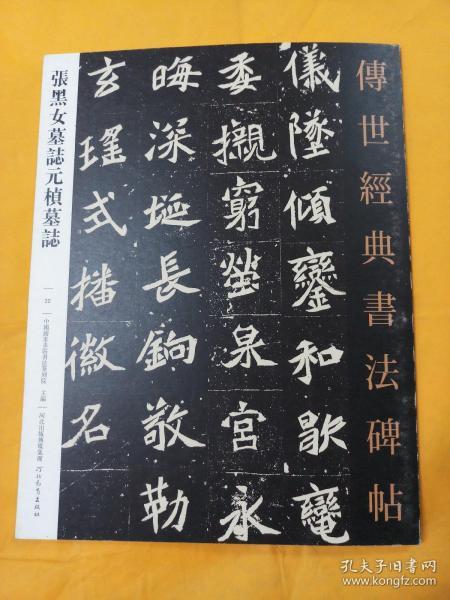 傳世經典書法碑帖
儀墜傾鑾和歇
委櫬窮塋泉宮永
晦深埏長敬勒
玄瑾式播徽名
張黑女墓誌元楨墓誌
22
中國國家畫院書法篆刻院 主編
河北出版傳媒集團
河北教育出版社
孔夫子旧书网
www.kongfz.com